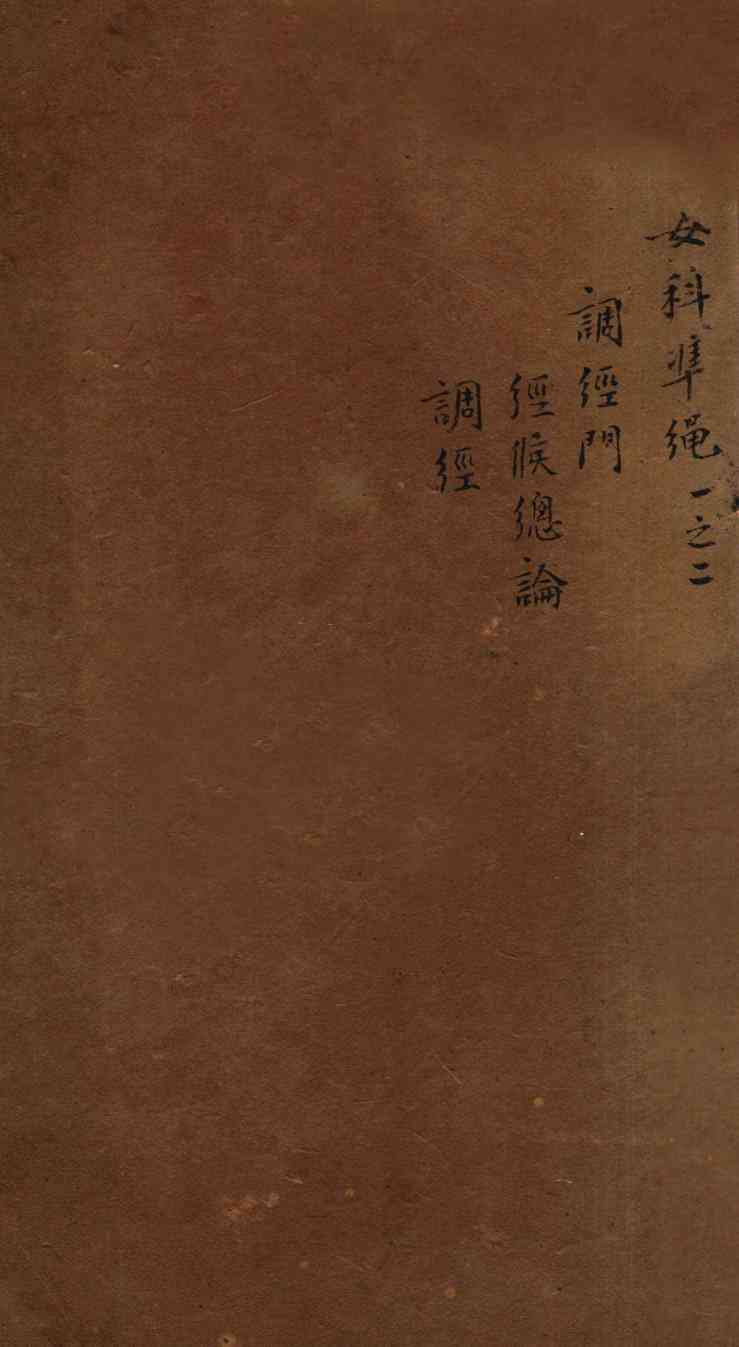 女科準繩一之二
調經門
經候總論
調經